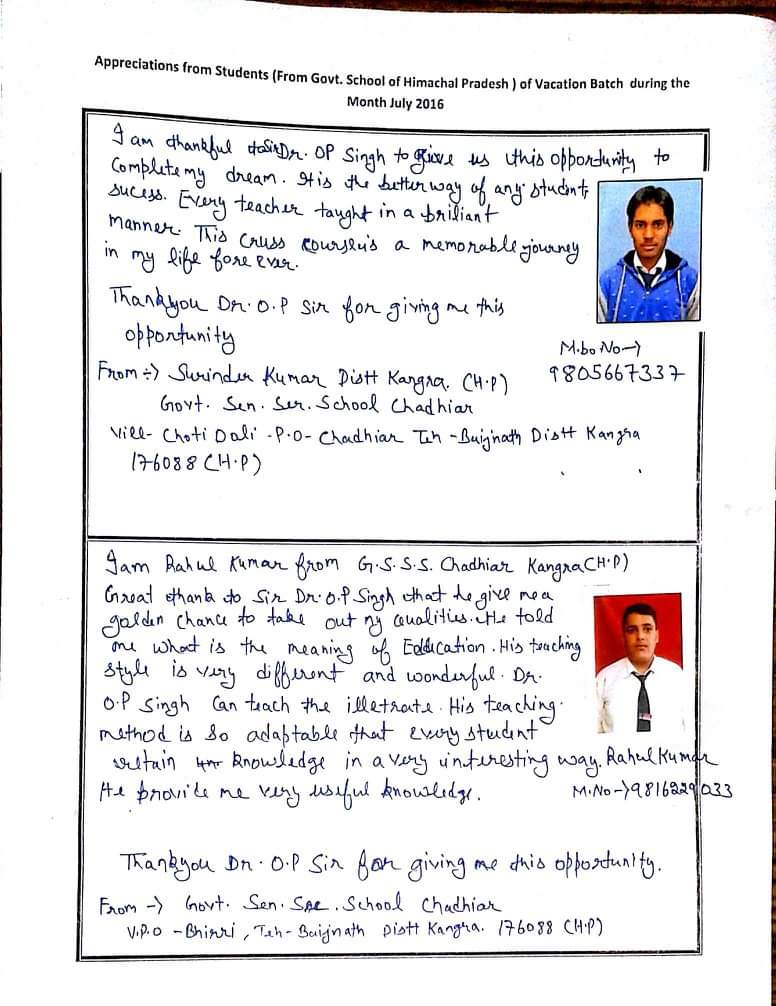 Appreciations from Students (From Govt. School of Himachal Pradesh ) of Vacation Batch during the
Month July 2016
I am thankful to Sir Dr. OP Singh to give us this opportunity to
Complete my dream. It is the better way of any student,
sucess. Every teacher taught in a briliant
manner. This Cruss Course is a memorable journey
in my life fore ever.
Thankyou Dr. O.P Sir for giving me this
opportunity
M.bo No→
9805667337
From ÷) Surinder Kumar Distt Kangra. (H.P)
Govt. Sen. Ser. School Chadhiar
Vill- Choti Dali .P.O- Chadhiar Teh -Baijnath Distt Kangra
176088 (H.P)
I am Rahul Kumar from G.S.S.S. Chadhiar Kangra (H.P)
Great thank to Sir Dr. O.P Singh that he give me a
golden chance to take out my qualities. He told
me what is the meaning of Education. His teaching
style is very different and wonderful. Dr.
O.P Singh Can teach the illetrate. His teaching
method is so adaptable that every student
retain knowledge in a very interesting way. Rahul Kumar
He provide me very useful knowledge. M.No→9816229033
Thankyou Dr. O.P Sir for giving me this opportunity.
From → Govt. Sen. Sec. School Chadhiar
V.P.O - Bhirri, Teh- Baijnath Distt Kangra. 176088 (H.P)